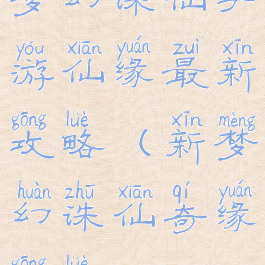 梦幻诛仙手
yóu xiān yuán zuì xīn
游仙缘最新
gōng lüè xīn mèng
攻略（新梦
huàn zhū xiān qí yuán
幻诛仙奇缘
gōng lüè